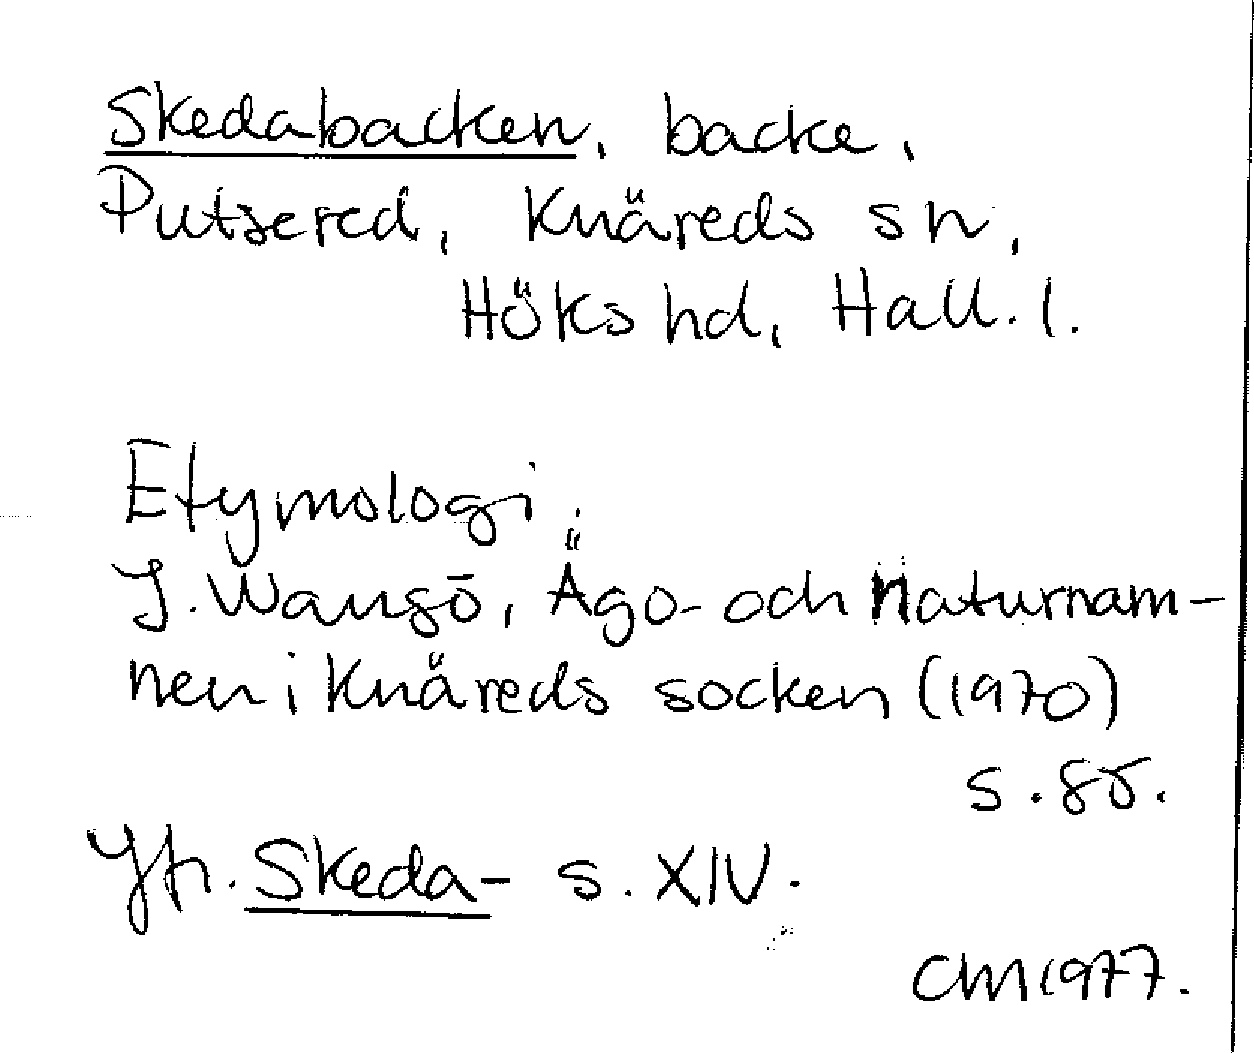 Skedabacken, backe,
Putsered, Knäreds sn,
Höks hd, Hall. l.
Etymologi.
J. Wangö, Ägo- och Naturnam-
nen i Knäreds socken (1970)
s. 85.
Jfr. Skeda- s. XIV.
CM 1977.